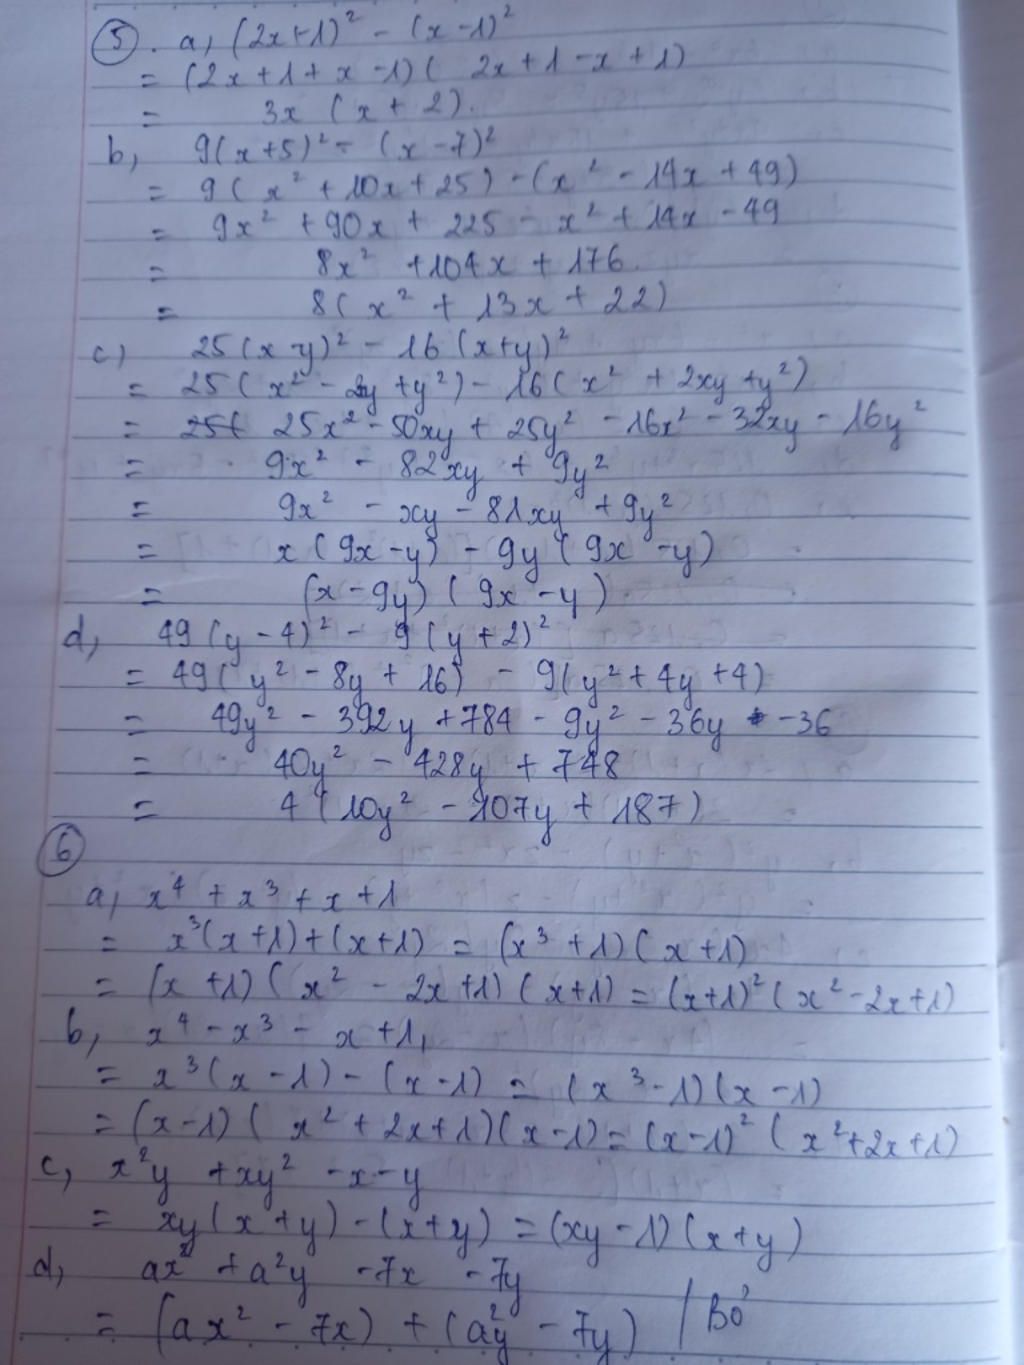 5. a, (2x+1)² - (x-1)²
= (2x+1+x-1)(2x+1-x+1)
= 3x (x+2).
b, 9(x+5)² - (x-7)²
= 9(x² + 10x + 25) - (x² - 14x + 49)
= 9x² + 90x + 225 - x² + 14x - 49
= 8x² + 104x + 176.
= 8(x² + 13x + 22)
c) 25(x-y)² - 16(x+y)²
= 25(x² - 2y + y²) - 16(x² + 2xy + y²)
= 25x² - 50xy + 25y² - 16x² - 32xy - 16y²
= 9x² - 82xy + 9y²
= 9x² - xy - 81xy + 9y²
= x(9x-y) - 9y(9x-y)
= (x-9y)(9x-y)
d, 49(y-4)² - 9(y+2)²
= 49(y² - 8y + 16) - 9(y² + 4y + 4)
= 49y² - 392y + 784 - 9y² - 36y - 36
= 40y² - 428y + 748
= 4(10y² - 107y + 187)
6
a, x⁴ + x³ + x + 1
= x³(x+1) + (x+1) = (x³+1)(x+1)
= (x+1)(x² - 2x + 1)(x+1) = (x+1)²(x² - 2x + 1)
b, x⁴ - x³ - x + 1,
= x³(x-1) - (x-1) = (x³-1)(x-1)
= (x-1)(x² + 2x + 1)(x-1) = (x-1)²(x² + 2x + 1)
c, x²y + xy² - x - y
= xy(x+y) - (x+y) = (xy-1)(x+y)
d, ax² + a²y - 7x - 7y
= (ax² - 7x) + (a²y - 7y) / Bỏ